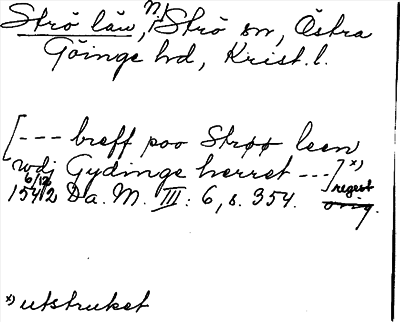 Strö län, n, Strö sn, Östra
Göinge hd, Krist. l.
[--- breff poo Strøø leen
wdj Gydinge herret ---] x)
6/12 regest
1542 Da. M. III: 6, s. 354. orig.
x) utstruket